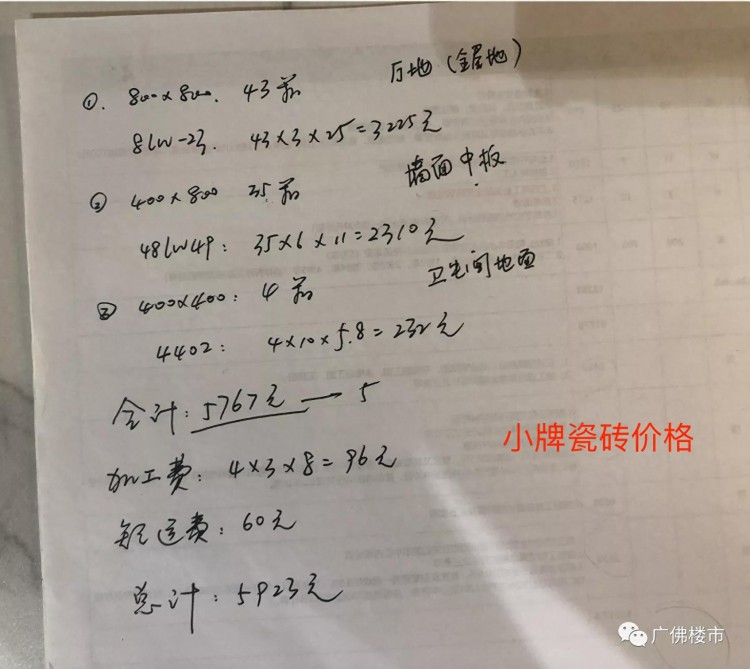 ①. 800×800. 43箱 厅地(全屋地)
8LW-23. 43×3×25=3225元
② 400×800 35箱 墙面中板
48LW49: 35×6×11=2310元
③ 400×400: 4箱 卫生间地面
4402: 4×10×5.8=232元
合计:5767元 → 5
小牌瓷砖价格
加工费: 4×3×8=96元
运费:60元
总计:5923元
广佛楼市